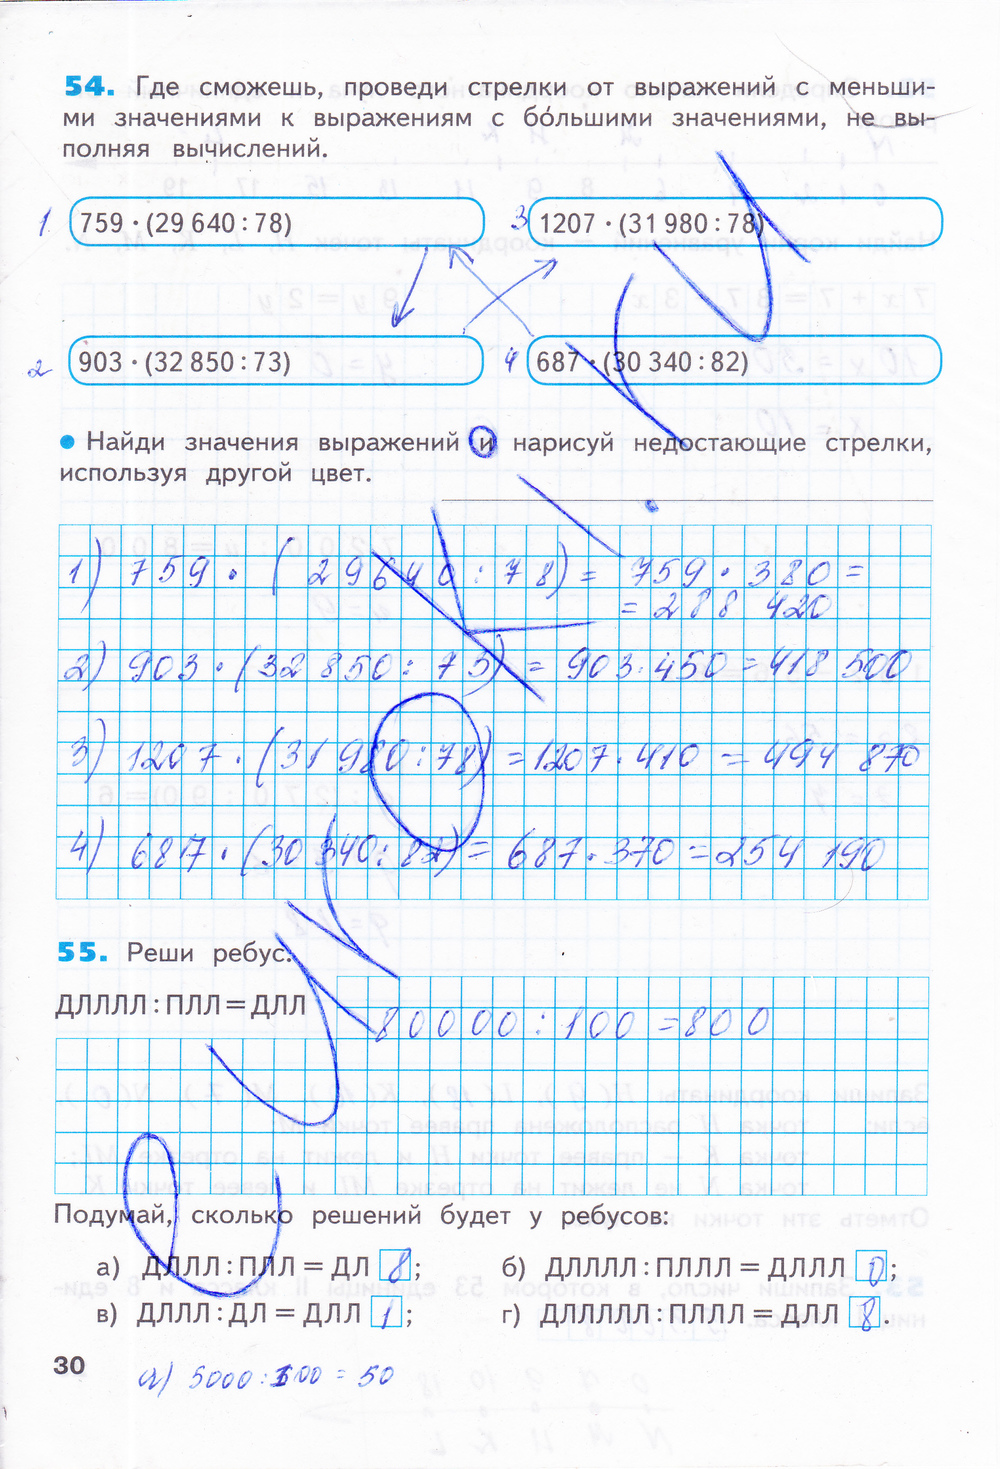 54. Где сможешь, проведи стрелки от выражений с меньши-
ми значениями к выражениям с бо́льшими значениями, не вы-
полняя вычислений.
1. 759 · (29 640 : 78) 3 1207 · (31 980 : 78)
2 903 · (32 850 : 73) 4 687 · (30 340 : 82)
• Найди значения выражений и нарисуй недостающие стрелки,
используя другой цвет.
1) 759 · (29640 : 78) = 759 · 380 =
= 288 420
2) 903 · (32 850 : 73) = 903 · 450 = 418 500
3) 1207 · (31 980 : 78) = 1207 · 410 = 494 870
4) 687 · (30 340 : 82) = 687 · 370 = 254 190
55. Реши ребус.
ДЛЛЛЛ : ПЛЛ = ДЛЛ
80000 : 100 = 800
Подумай, сколько решений будет у ребусов:
а) ДЛЛЛ : ПЛЛ = ДЛ 8; б) ДЛЛЛЛ : ПЛЛЛ = ДЛЛЛ 0;
в) ДЛЛЛ : ДЛ = ДЛЛ 1; г) ДЛЛЛЛЛ : ПЛЛЛ = ДЛЛ 8.
30
а) 5000 : 100 = 50